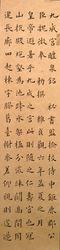 九成宮醴泉銘 秘書監檢校侍中鉅鹿郡公
臣魏徵奉勅撰 維貞觀六年孟夏之月
皇帝避暑乎九成之宮此則隨之仁壽宮也冠
山抗殿絕壑為池跨水架楹分巖竦闕高閣周
建長廊四起棟宇膠葛臺榭參差仰視則迢遰